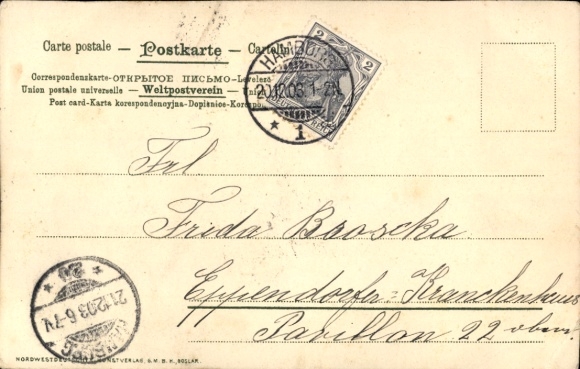 Carte postale — Postkarte — Cartolin
Correspondenzkarte-ОТКРЫТОЕ ПИСЬМО-Levelező
Union postale universelle — Weltpostverein — Union
Post card-Karta korespondencyjna-Dopisnice-Korespon
2 2
HAMBURG
20.12.03. 1-2N.
* 1
Frl
Frida Broscka.
Eppendorfer-Kranckenhaus
Pavillon 22 oben.
* 20 *
21.12.03 6-7V.
HAMBURG
NORDWESTDEUTSCHER KUNSTVERLAG, G.M.B.H., GOSLAR.